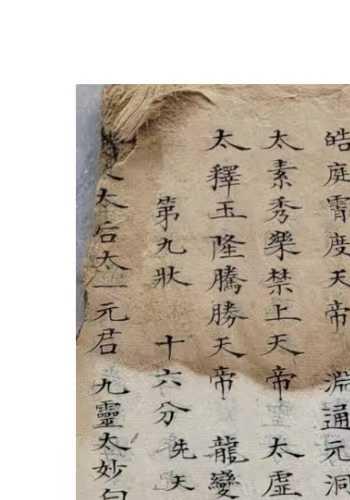 皓庭霄度天帝 淵通元洞
太素秀樂禁上天帝 太虛
太釋玉隆騰勝天帝 龍變
第九狀 十六分 先天
太后太一元君 九靈太妙